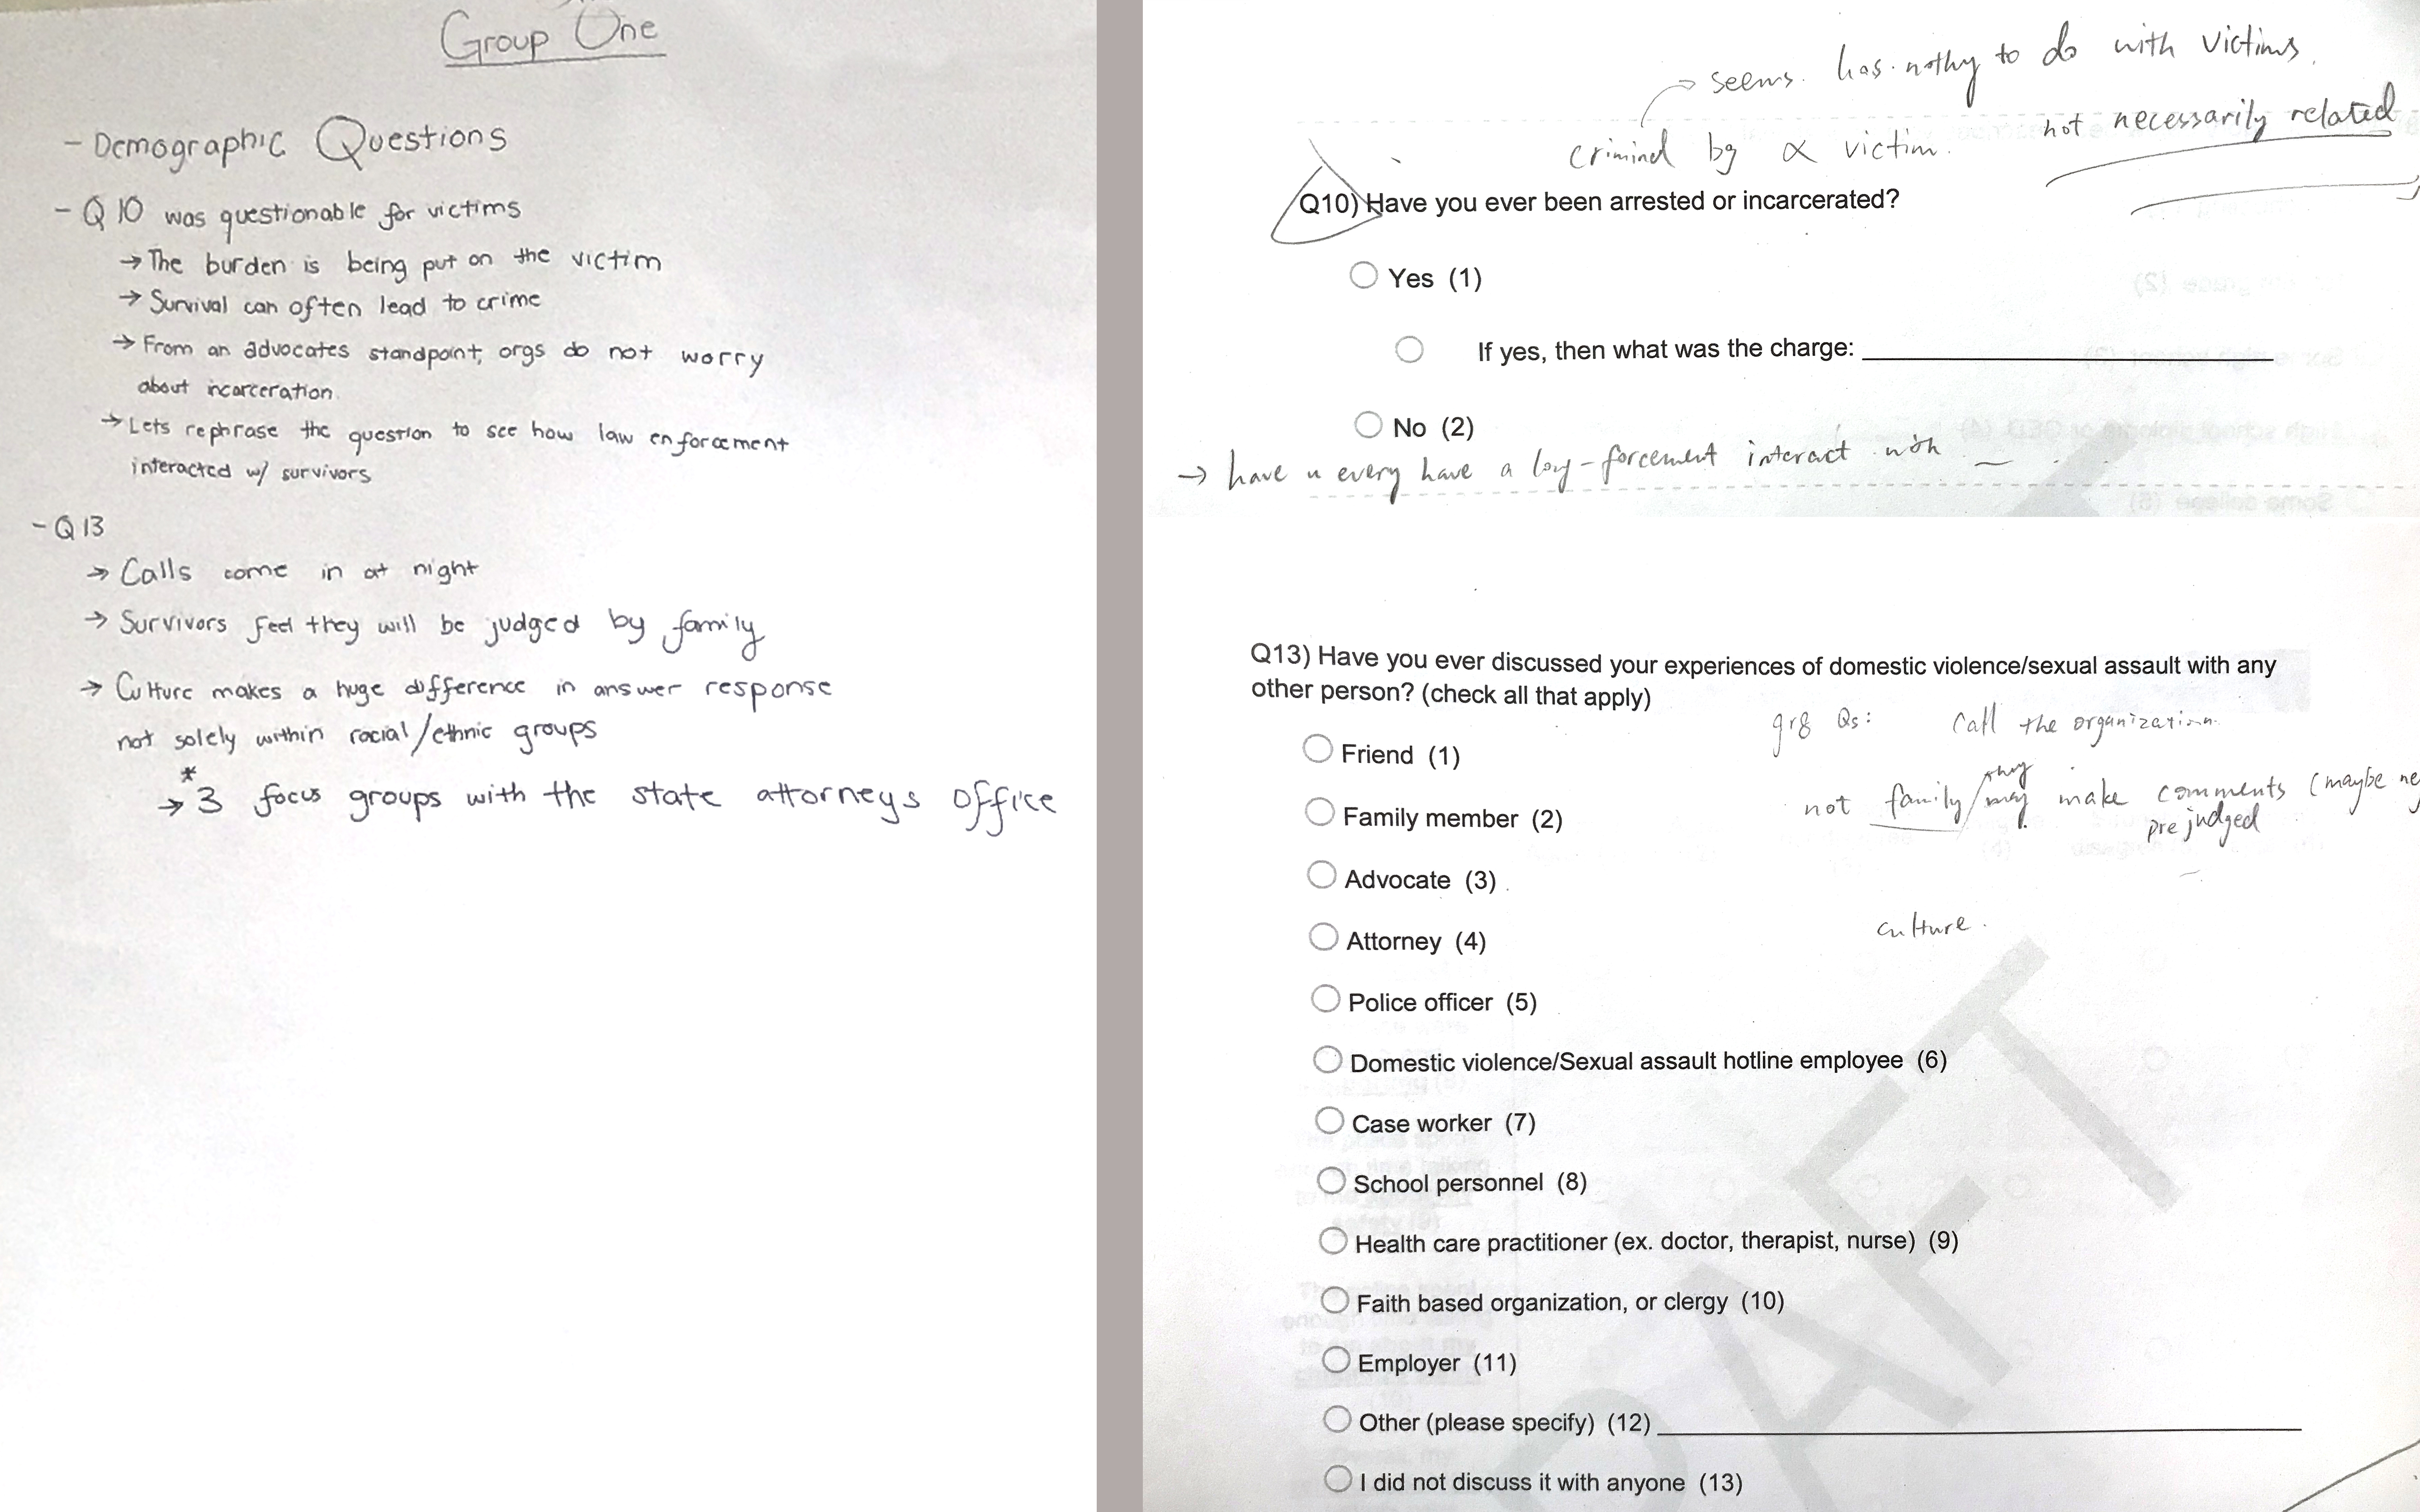 Group One
- Demographic Questions
- Q 10 was questionable for victims
→ The burden is being put on the victim
→ Survival can often lead to crime
→ From an advocates standpoint, orgs do not worry
about incarceration.
→ Lets rephrase the question to see how law enforcement
interacted w/ survivors
- Q 13
→ Calls come in at night
→ Survivors feel they will be judged by family
→ Culture makes a huge difference in answer response
not solely within racial/ethnic groups
*
→ 3 focus groups with the state attorneys office
→ seems has to do with victims.
not necessarily related
by victim.
Q10) Have you ever been arrested or incarcerated?
Yes (1)
If yes, then what was the charge:
No (2)
→ have u every have a interact with
Q13) Have you ever discussed your experiences of domestic violence/sexual assault with any
other person? (check all that apply)
Qs: Call the organization.
Friend (1)
they
not family/may make comments (maybe ne
prejudged
Family member (2)
Advocate (3)
culture.
Attorney (4)
Police officer (5)
Domestic violence/Sexual assault hotline employee (6)
Case worker (7)
School personnel (8)
Health care practitioner (ex. doctor, therapist, nurse) (9)
Faith based organization, or clergy (10)
Employer (11)
Other (please specify) (12)
I did not discuss it with anyone (13)